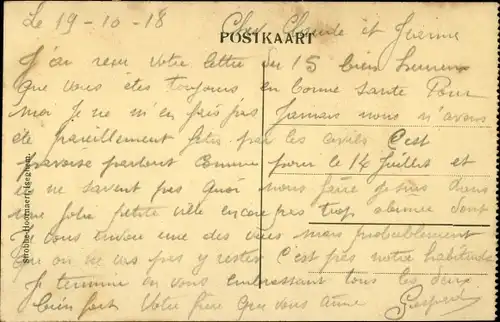 Le 19-10-18
Cher Claude et Jeanne
POSTKAART
J'ai reçu votre lettre du 15 bien heureux
que vous êtes toujours en bonne santé Pour
moi je ne m'en fais pas Jamais nous n'avons
été pareillement fêtés par les civils C'est
pavoisé partout comme pour le 14 Juillet et
ne savent pas quoi nous faire je suis dans
une jolie petite ville encore pas trop abimée dont
je vous envoie une des vues mais probablement
que on ne va pas y rester C'est pas notre habitude
Je termine en vous embrassant tous les deux
bien fort Votre frère que vous aime